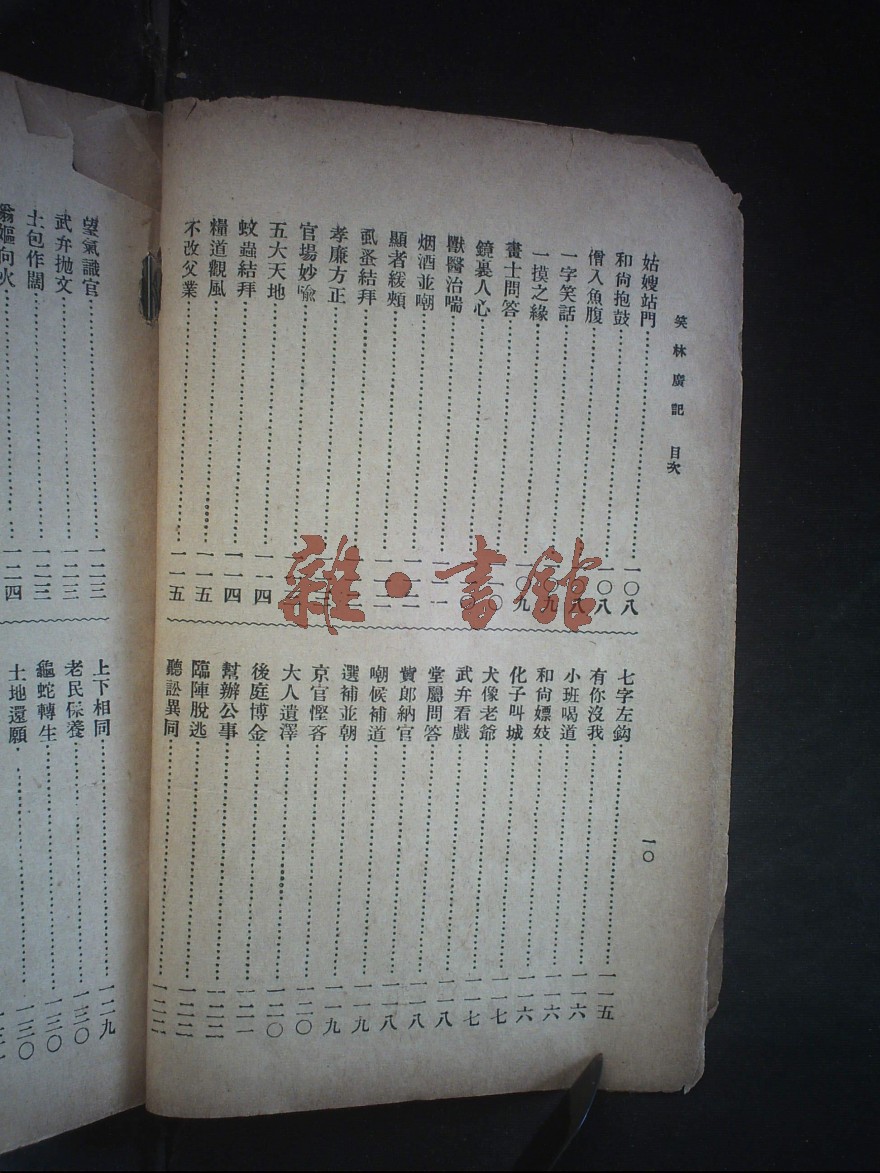 笑林廣記 目次
一〇
姑嫂站門 一〇八
和尙抱鼓 一〇八
僧入魚腹 一〇八
一字笑話
一摸之緣 一〇九
畫士問答
鏡裏人心
獸醫治喘
烟酒並嘲
顯者緩頰
虱蚤結拜
孝廉方正
官場妙喩
五大天地 一一四
蚊蟲結拜 一一四
糧道觀風 一一五
不改父業 一一五
七字左鈎 一一五
有你沒我 一一六
小班喝道 一一六
和尙嫖妓 一一六
化子叫城 一一六
犬像老爺 一一七
武弁看戲 一一七
堂屬問答 一一八
貲郎納官 一一八
嘲候補道 一一八
選補並朝 一一九
京官慳吝 一一九
大人遺澤 一二〇
後庭博金 一二〇
幫辦公事 一二一
臨陣脫逃 一二二
聽訟異同 一二二
望氣識官 一二三
武弁抛文 一二三
士包作闊 一二三
翁嫗向火 一二四
上下相同 一二九
老民保養 一三〇
龜蛇轉生 一三〇
土地還願 一三〇
雜·書館